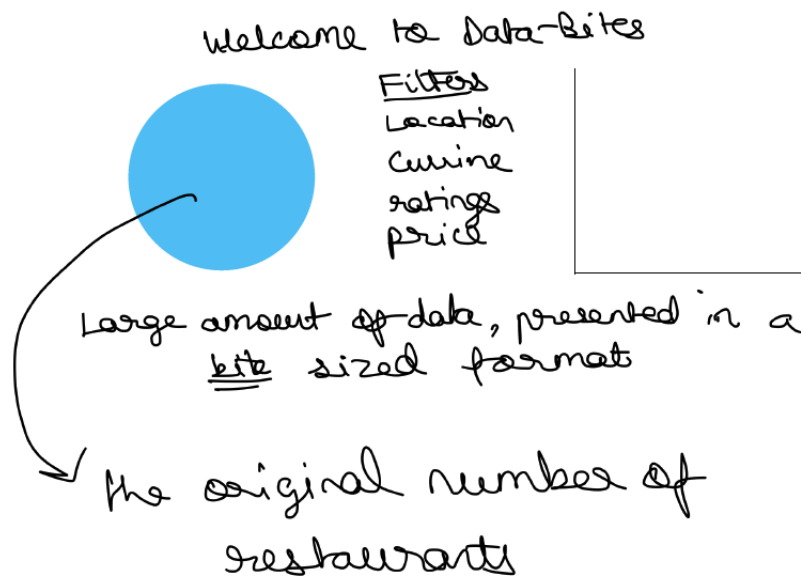 Welcome to Data-Bites
Filters
Location
Cuisine
ratings
price
Large amount of data, presented in a
bite sized format
the original number of
restaurants